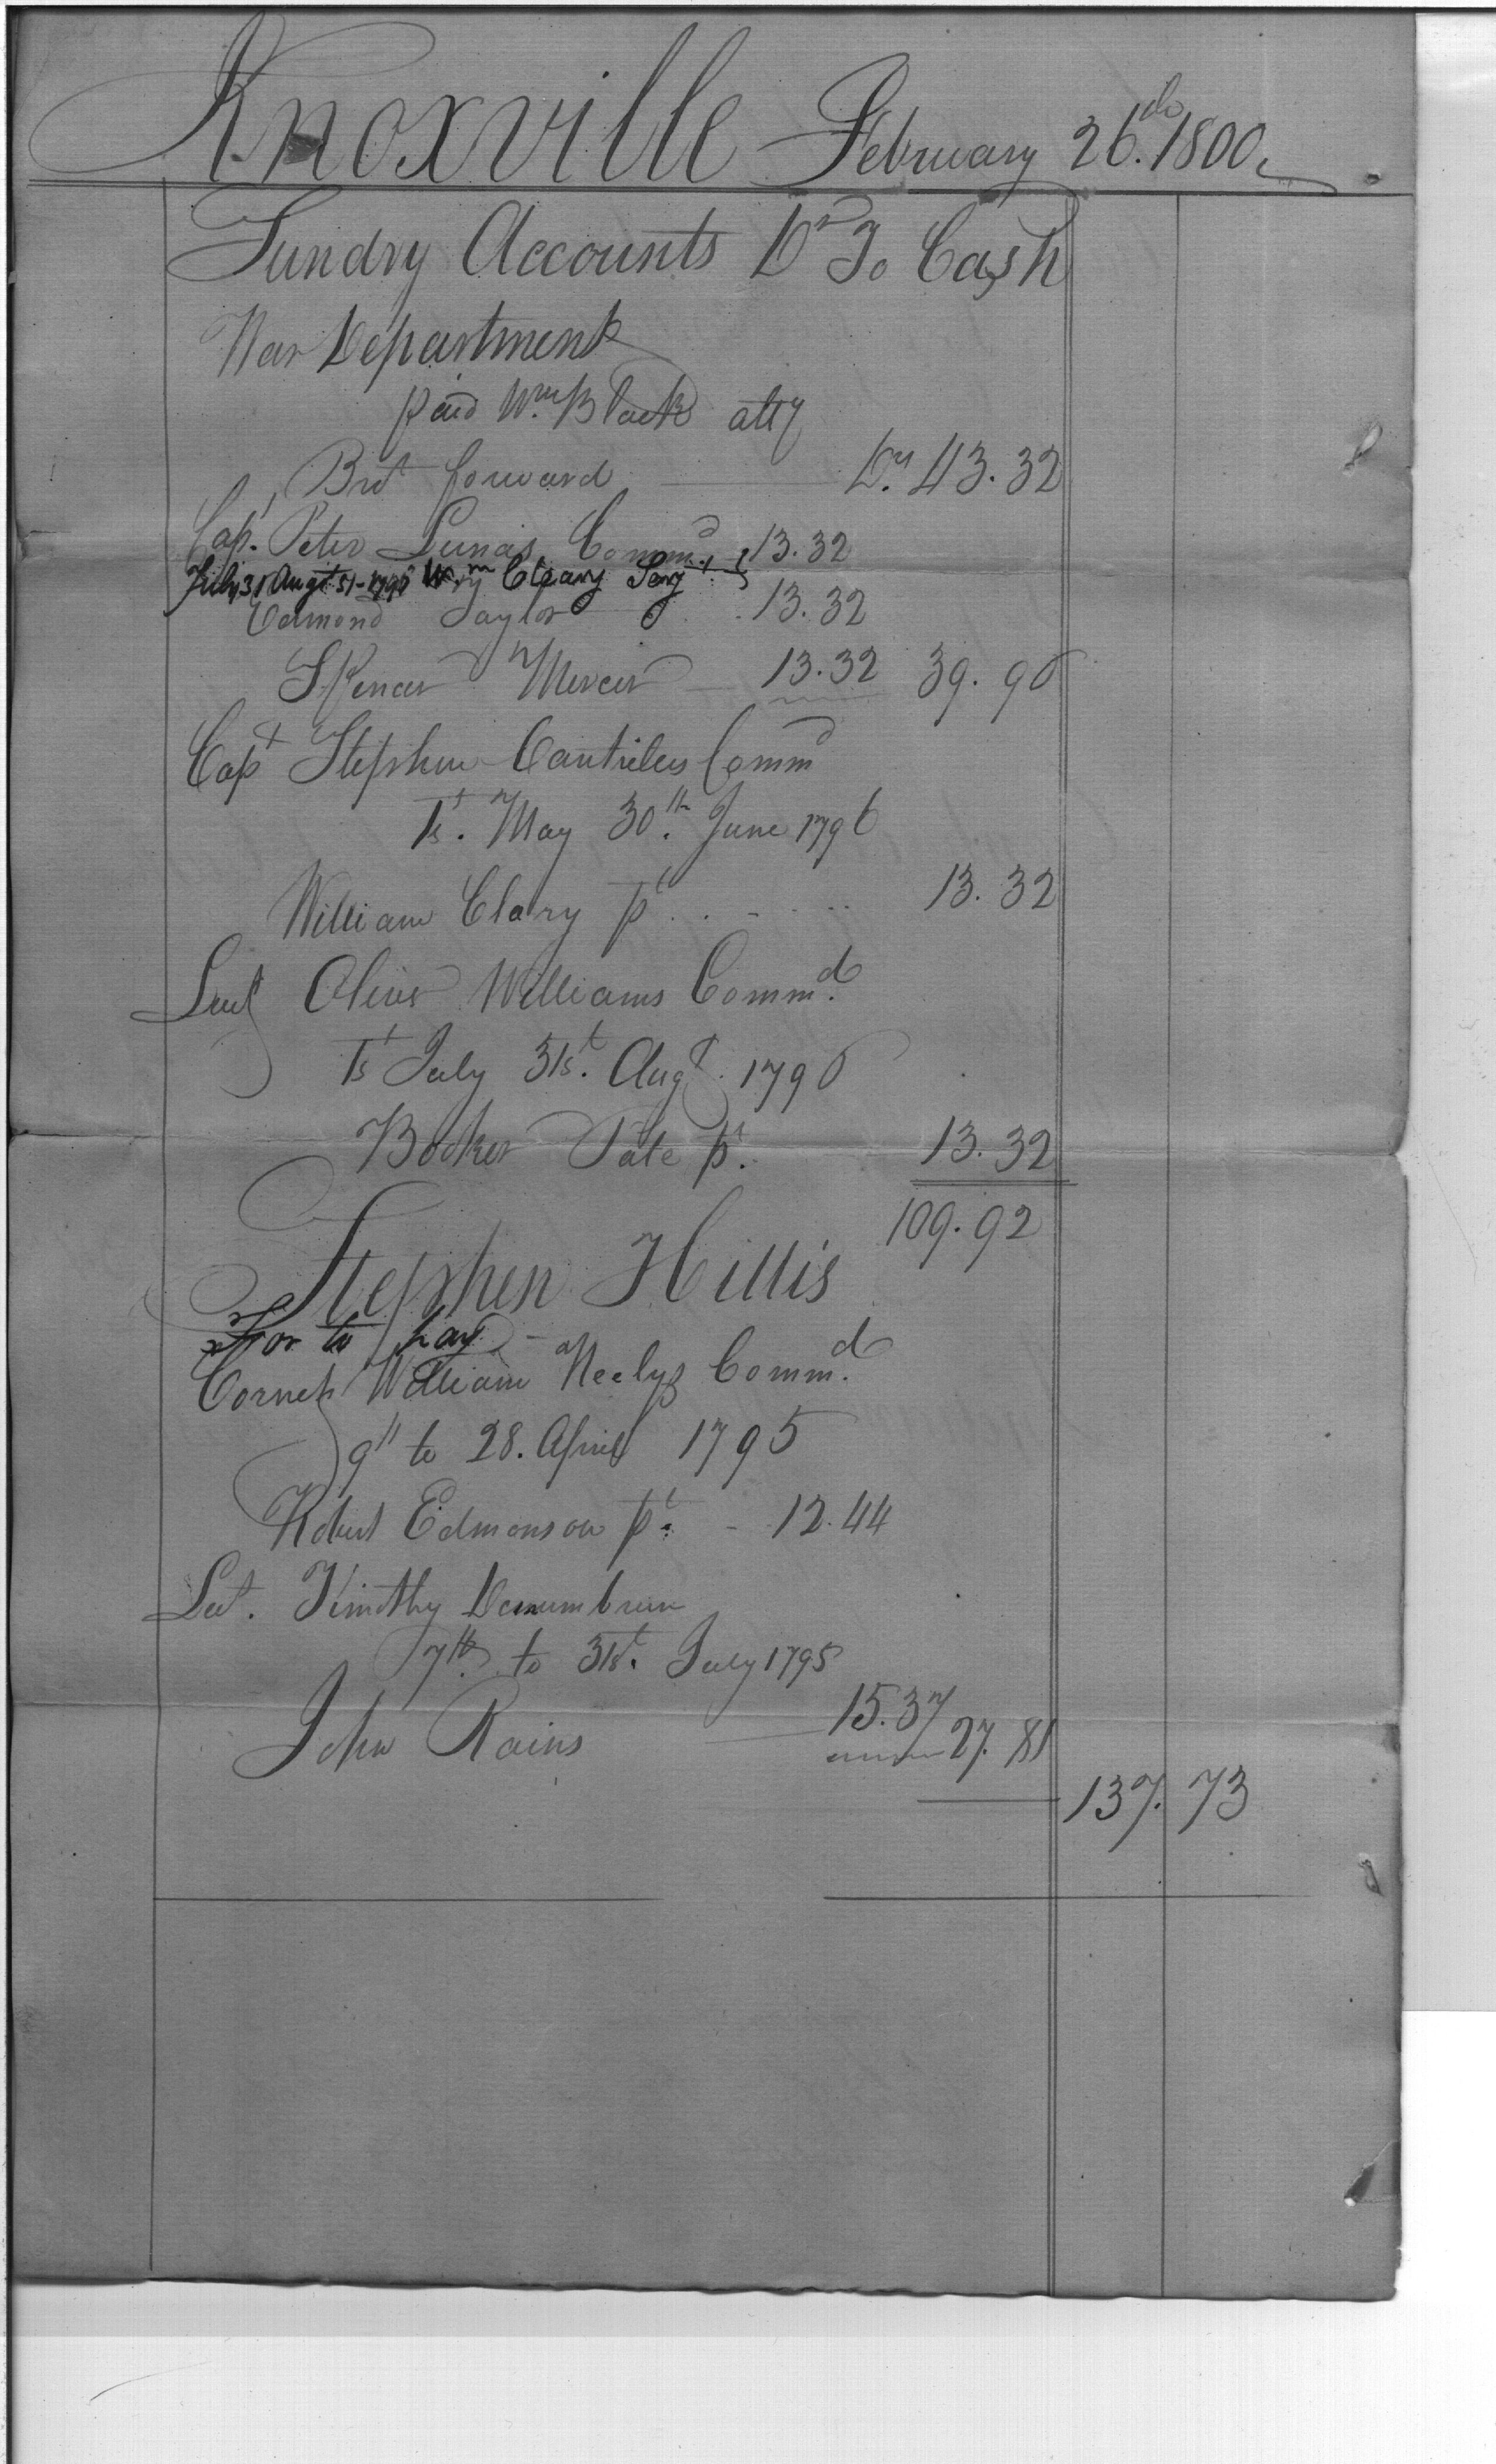 Knoxville February 26.do 1800
Sundry Accounts Dr To Cash
War Department
paid Wm Black atty
Brt forward Drs 43.32
Capt. Peter Lunas Commd. 13.32
July 31 Augt 31 - 1796 Wm Cleary Sergt
Edmond Taylor 13.32
Spencer Mercer 13.32 39.96
Capt Stephen Cantrells Commd
1st. May 30th. June 1796
William Clary pt 13.32
Lieut Oliver Williams Commd.
1st July 31st. Augt. 1796
Booker Pate pt. 13.32
109.92
Stephen Hillis
For to pay
Cornet William Neelys Commd.
9th to 28. April 1795
Robert Edmonson pt. - 12.44
Lut. Timothy Demumbrun
7th. to 31st. July 1795
John Rains 15.37 27.81
137.73